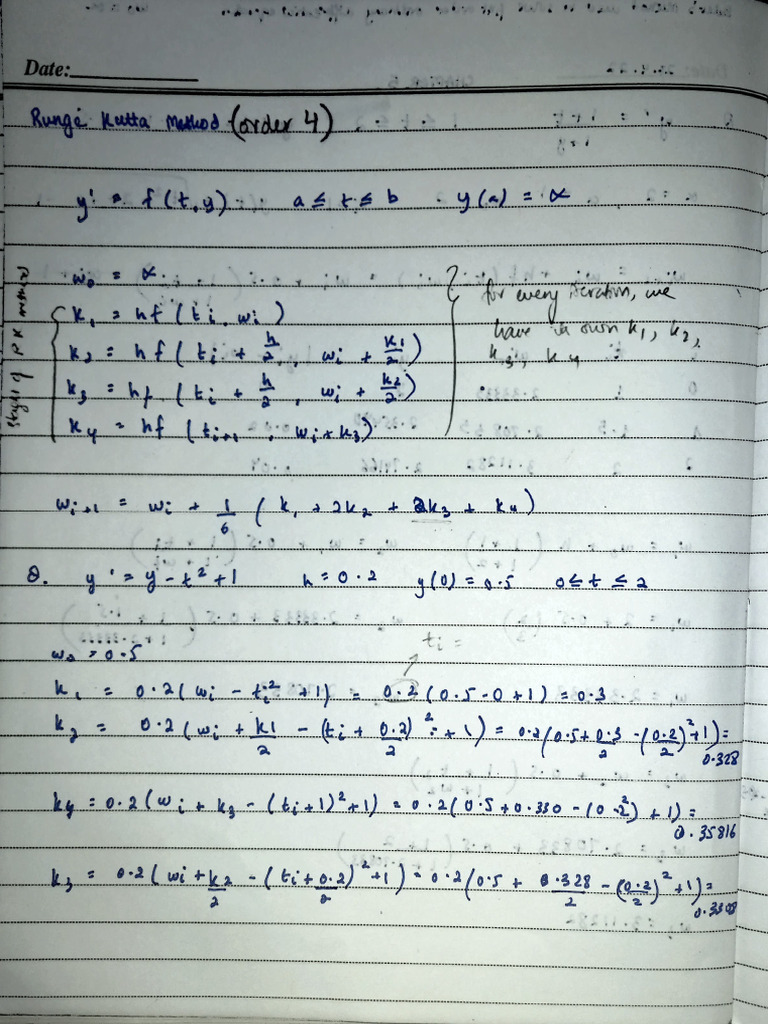 Date:
Runge Kutta Method (order 4)
y' = f(t,y) a ≤ t ≤ b y(a) = α
w₀ = α
k₁ = hf(ti, wi)
k₂ = hf(ti + h/2, wi + k₁/2)
k₃ = hf(ti + h/2, wi + k₂/2)
k₄ = hf(ti+1, wi+k₃)
stages of RK method
for every iteration, we
have its own k₁, k₂,
k₃, k₄.
wi+1 = wi + 1/6 (k₁ + 2k₂ + 2k₃ + k₄)
Q. y' = y - t² + 1 h = 0.2 y(0) = 0.5 0 ≤ t ≤ 2
ti =
w₀ = 0.5
k₁ = 0.2(wi - ti² + 1) = 0.2(0.5-0+1) = 0.3
k₂ = 0.2(wi + k1/2 - (ti + 0.2/2)² + 1) = 0.2(0.5 + 0.3/2 - (0.2/2)² + 1) = 0.328
k₄ = 0.2(wi + k₃ - (ti+1)² + 1) = 0.2(0.5 + 0.330 - (0.2²) + 1) = 0.35816
k₃ = 0.2(wi + k2/2 - (ti + 0.2/2)² + 1) = 0.2(0.5 + 0.328/2 - (0.2/2)² + 1) = 0.3308